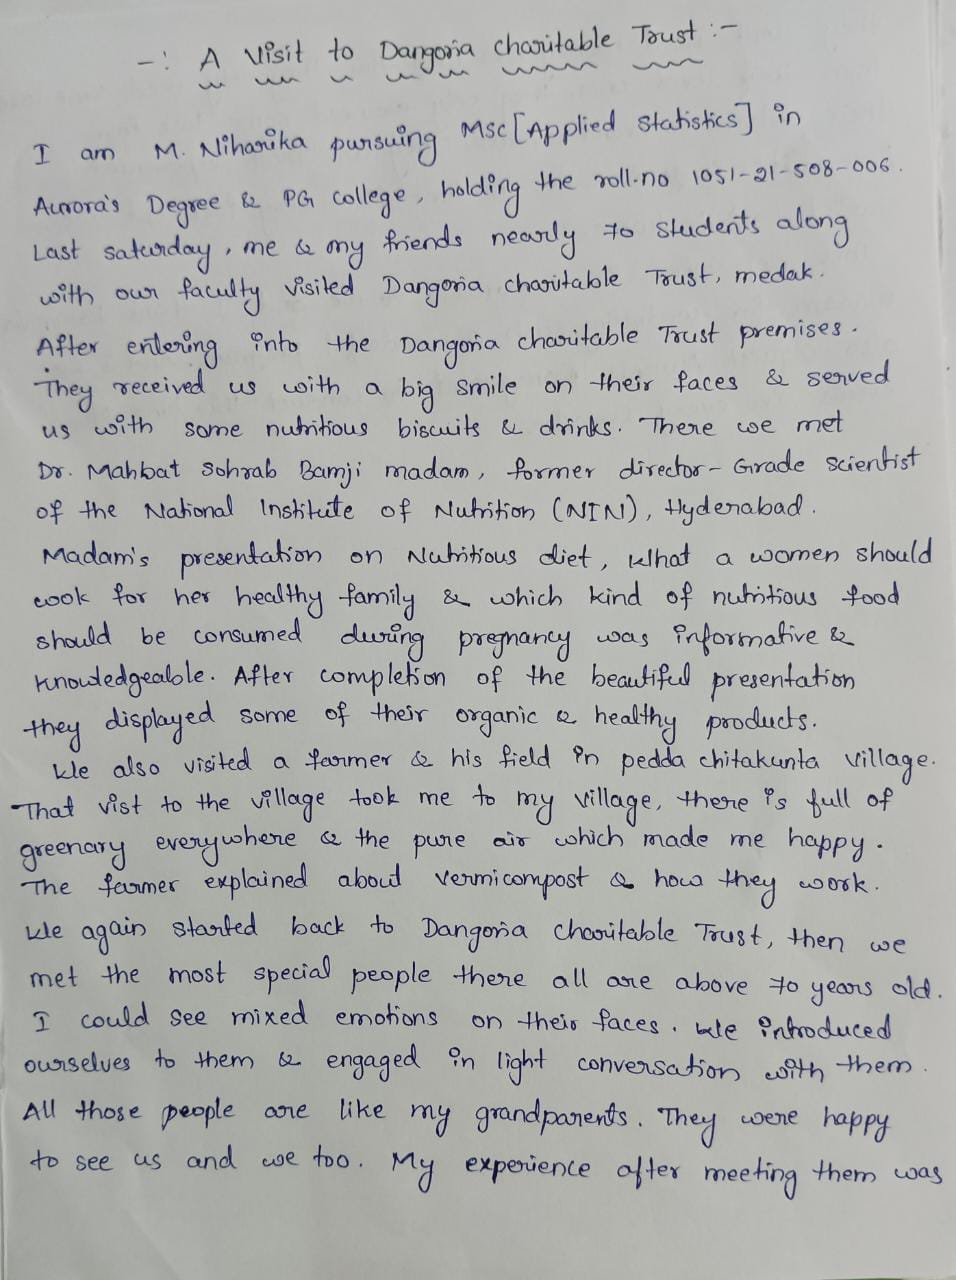 -: A Visit to Dangoria charitable Trust :-
I am M. Niharika pursuing Msc [Applied Statistics] in
Aurora's Degree & PG college, holding the roll.no 1051-21-508-006.
Last saturday, me & my friends nearly 70 students along
with our faculty visited Dangoria charitable Trust, medak.
After entering into the Dangoria charitable Trust premises.
They received us with a big smile on their faces & served
us with some nutritious biscuits & drinks. There we met
Dr. Mahbat Sohrab Bamji madam, former director-Grade scientist
of the National Institute of Nutrition (NIN), Hyderabad.
Madam's presentation on Nutritious diet, What a women should
cook for her healthy family & which kind of nutritious food
should be consumed during pregnancy was informative &
knowledgeable. After completion of the beautiful presentation
they displayed some of their organic & healthy products.
We also visited a farmer & his field in pedda chitakunta village.
That vist to the village took me to my village, there is full of
greenary everywhere & the pure air which made me happy.
The farmer explained about vermicompost & how they work.
We again started back to Dangoria charitable Trust, then we
met the most special people there all are above 70 years old.
I could see mixed emotions on their faces. We introduced
ourselves to them & engaged in light conversation with them.
All those people are like my grandparents. They were happy
to see us and we too. My experience after meeting them was